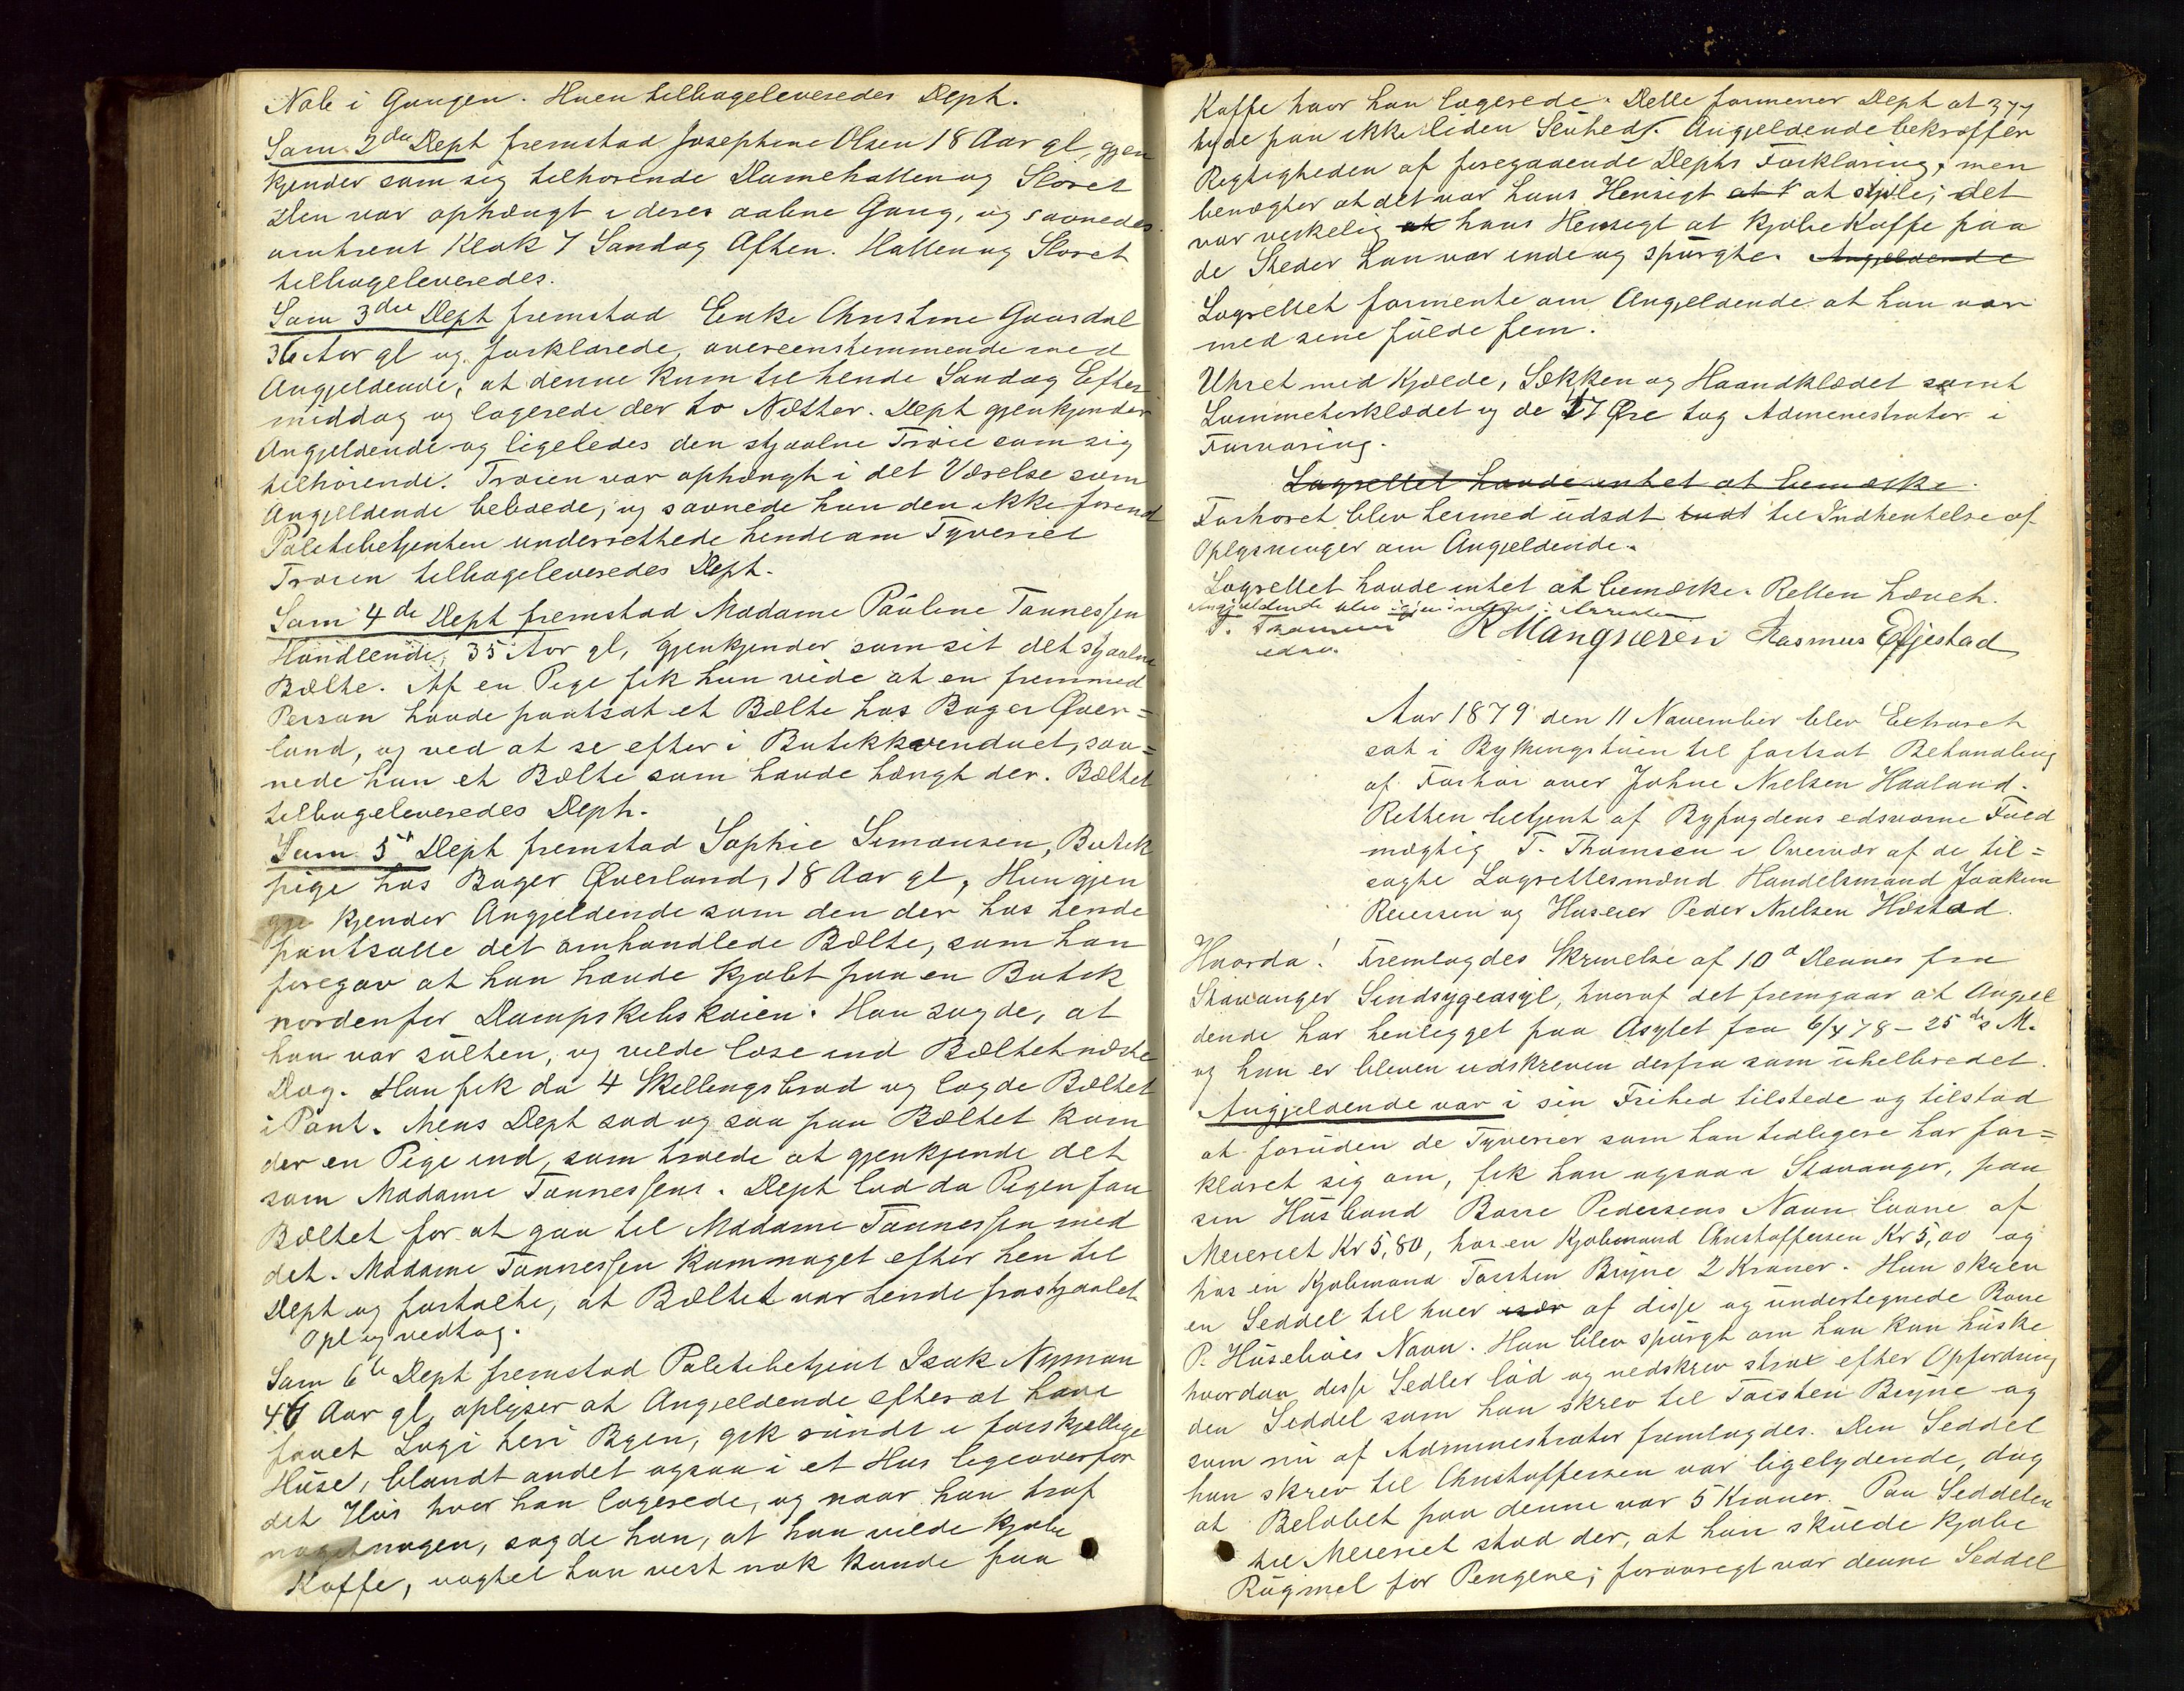 i Gangen. Huen tilbageleveredes Dept.
Som 2den Dept fremstod Josephine Olsen 18 Aar gl, gjen
kjender som sig tilhørende Damehatten og Sløret
Den var ophængt i deres aabne Gang, og savnedes
omtrent Klok 7 Søndag Aften. Hatten og Sløret
tilbageleveredes.
Som 3die Dept fremstod Enke Christine Gaasdal
36 Aar gl og forklarede, overeensstemmende med
Angjeldende, at denne kom til hende Søndag Efter
middag og logerede der to Nætter. Dept gjenkjender
Angjeldende og ligeledes den stjaalne Trøie som sig
tilhørende. Trøien var ophængt i det Værelse som
Angjeldende beboede, og savnede hun den ikke førend
Politibetjenten underrettede hende om Tyveriet
Trøien tilbageleveredes Dept.
Som 4de Dept fremstod Madame Pauline Tønnessen
Handlende, 35 Aar gl, gjenkjender som sit det stjaalne
Bælte. Af en Pige fik hun vide at en fremmed
Person havde pantsat et Bælte hos Bager Qver=
land, og ved at se efter i Butikkvenduet, sav=
nede hun et Bælte som havde hængt der. Bæltet
tilbageleveredes Dept.
Som 5t Dept fremstod Sophie Simonsen, Butik
pige hos Bager Qverland, 18 Aar gl, Hun gjen
kjender Angjeldende som den der hos hende
pantsatte det omhandlede Bælte, som han
foregav at han havde kjøbt paa en Butik
nordenfor Dampskibskaien. Han sagde, at
han var sulten, og vilde løse ind Bæltet næste
Dag. Han fik da 4 Skillingsbrød og lagde Bæltet
i Pant. Mens Dept sad og saa paa Bæltet kom
der en Pige ind, som troede at gjenkjende det
som Madame Tønnessens. Dept lod da Pigen faa
Bæltet for at gaa til Madame Tønnessen med
det. Madame Tønnessen kom noget efter hen til
Dept og fortalte, at Bæltet var hende frastjaalet.
Opl og vedtag.
Som 6te Dept fremstod Politibetjent Isak Nyman
46 Aar gl, oplyser at Angjeldende efter at have
faaet Logi her i Byen, gik rundt i forskjellige
Huse, blandt andet ogsaa i et Hus ligeoverfor
det Hus hvor han logerede, og naar han traf
nogen, sagde han, at han vilde kjøbe
Kaffe, uagtet han vist nok kunde faa
Kaffe hvor han logerede. Dette formener Dept at
tyde paa ikke liden Snuhed. Angjeldende bekræfter
Rigtigheden af foregaaende Depts Forklaring, men
benægter at det var hans Hensigt at stjæle; det
var virkelig hans Hensigt at kjøbe Kaffe paa
de Steder han var inde og spurgte. Angjeldende
Lagrettet formente om Angjeldende at han var
med sine fulde fem.
Uhret med Kjæde, Sækken og Haandklædet samt
Lommetørklædet og de 17 Øre tog Administrator i
Forvaring.
Lagrettet havde intet at bemærke.
Forhøret blev hermed udsat til Indhentelse af
Oplysninger om Angjeldende.
Lagrettet havde intet at bemærke. Retten hævet.
Angjeldende blev igjen indsat i Arresten
T. Thomsen R Mangnæren Rasmus Egjestad
edsv.
Aar 1879 den 11 November blev Extraret
sat i Bythingstuen til fortsat Behandling
af Forhør over Johne Nielsen Haaland.
Retten betjent af Byfogdens edsvorne Fuld
mægtig T. Thomsen i Overvær af de til=
sagte Lagrettesmænd Handelsmand Joakim
Reiersen og Huseier Peder Nielsen Hæstad.
Hvorda! Fremlagdes Skrivelse af 10d Dennes fra
Stavanger Sindsygeasyl, hvoraf det fremgaar at Angjel
dende har henligget paa Asylet fra 6/4 78 - 25 ds M.
og han er bleven udskreven derfra som uhelbredet.
Angjeldende var i sin Frihed tilstede og tilstod
at foruden de Tyverier som han tidligere har for=
klaret sig om, fik han ogsaa i Stavanger, paa
sin Husbond Borre Pedersens Navn laane af
Meieriet Kr 5,80, hos en Kjøbmand Christoffersen Kr 5,00 og
hos en Kjøbmand Torsten Bryne 2 Kroner. Han skrev
en Seddel til hver især af disse og undertegnede Borre
P. Husebøes Navn. Han blev spurgt om han kan huske
hvordan disse Sedler lød og nedskrev strax efter Opfordring
den Seddel som han skrev til Torsten Bryne og
som nu af Administrator fremlagdes. Den Seddel
han skrev til Christoffersen var ligelydende, dog
at Beløbet paa denne var 5 Kroner. Paa Seddelen
til Meieriet stod der, at han skulde kjøbe
Rugmel for Pengene; forøvrigt var denne Seddel